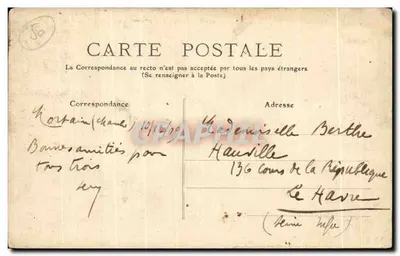 50
CARTE POSTALE
La Correspondance au recto n'est pas acceptée par tous les pays étrangers
(Se renseigner à la Poste)
Correspondance
Adresse
Mortain (Manche)
Bonnes amitiés pour
tous trois
Mademoiselle Berthe
Hauville
136 Cours de la République
Le Havre
(Seine Infre)
CARTORUM